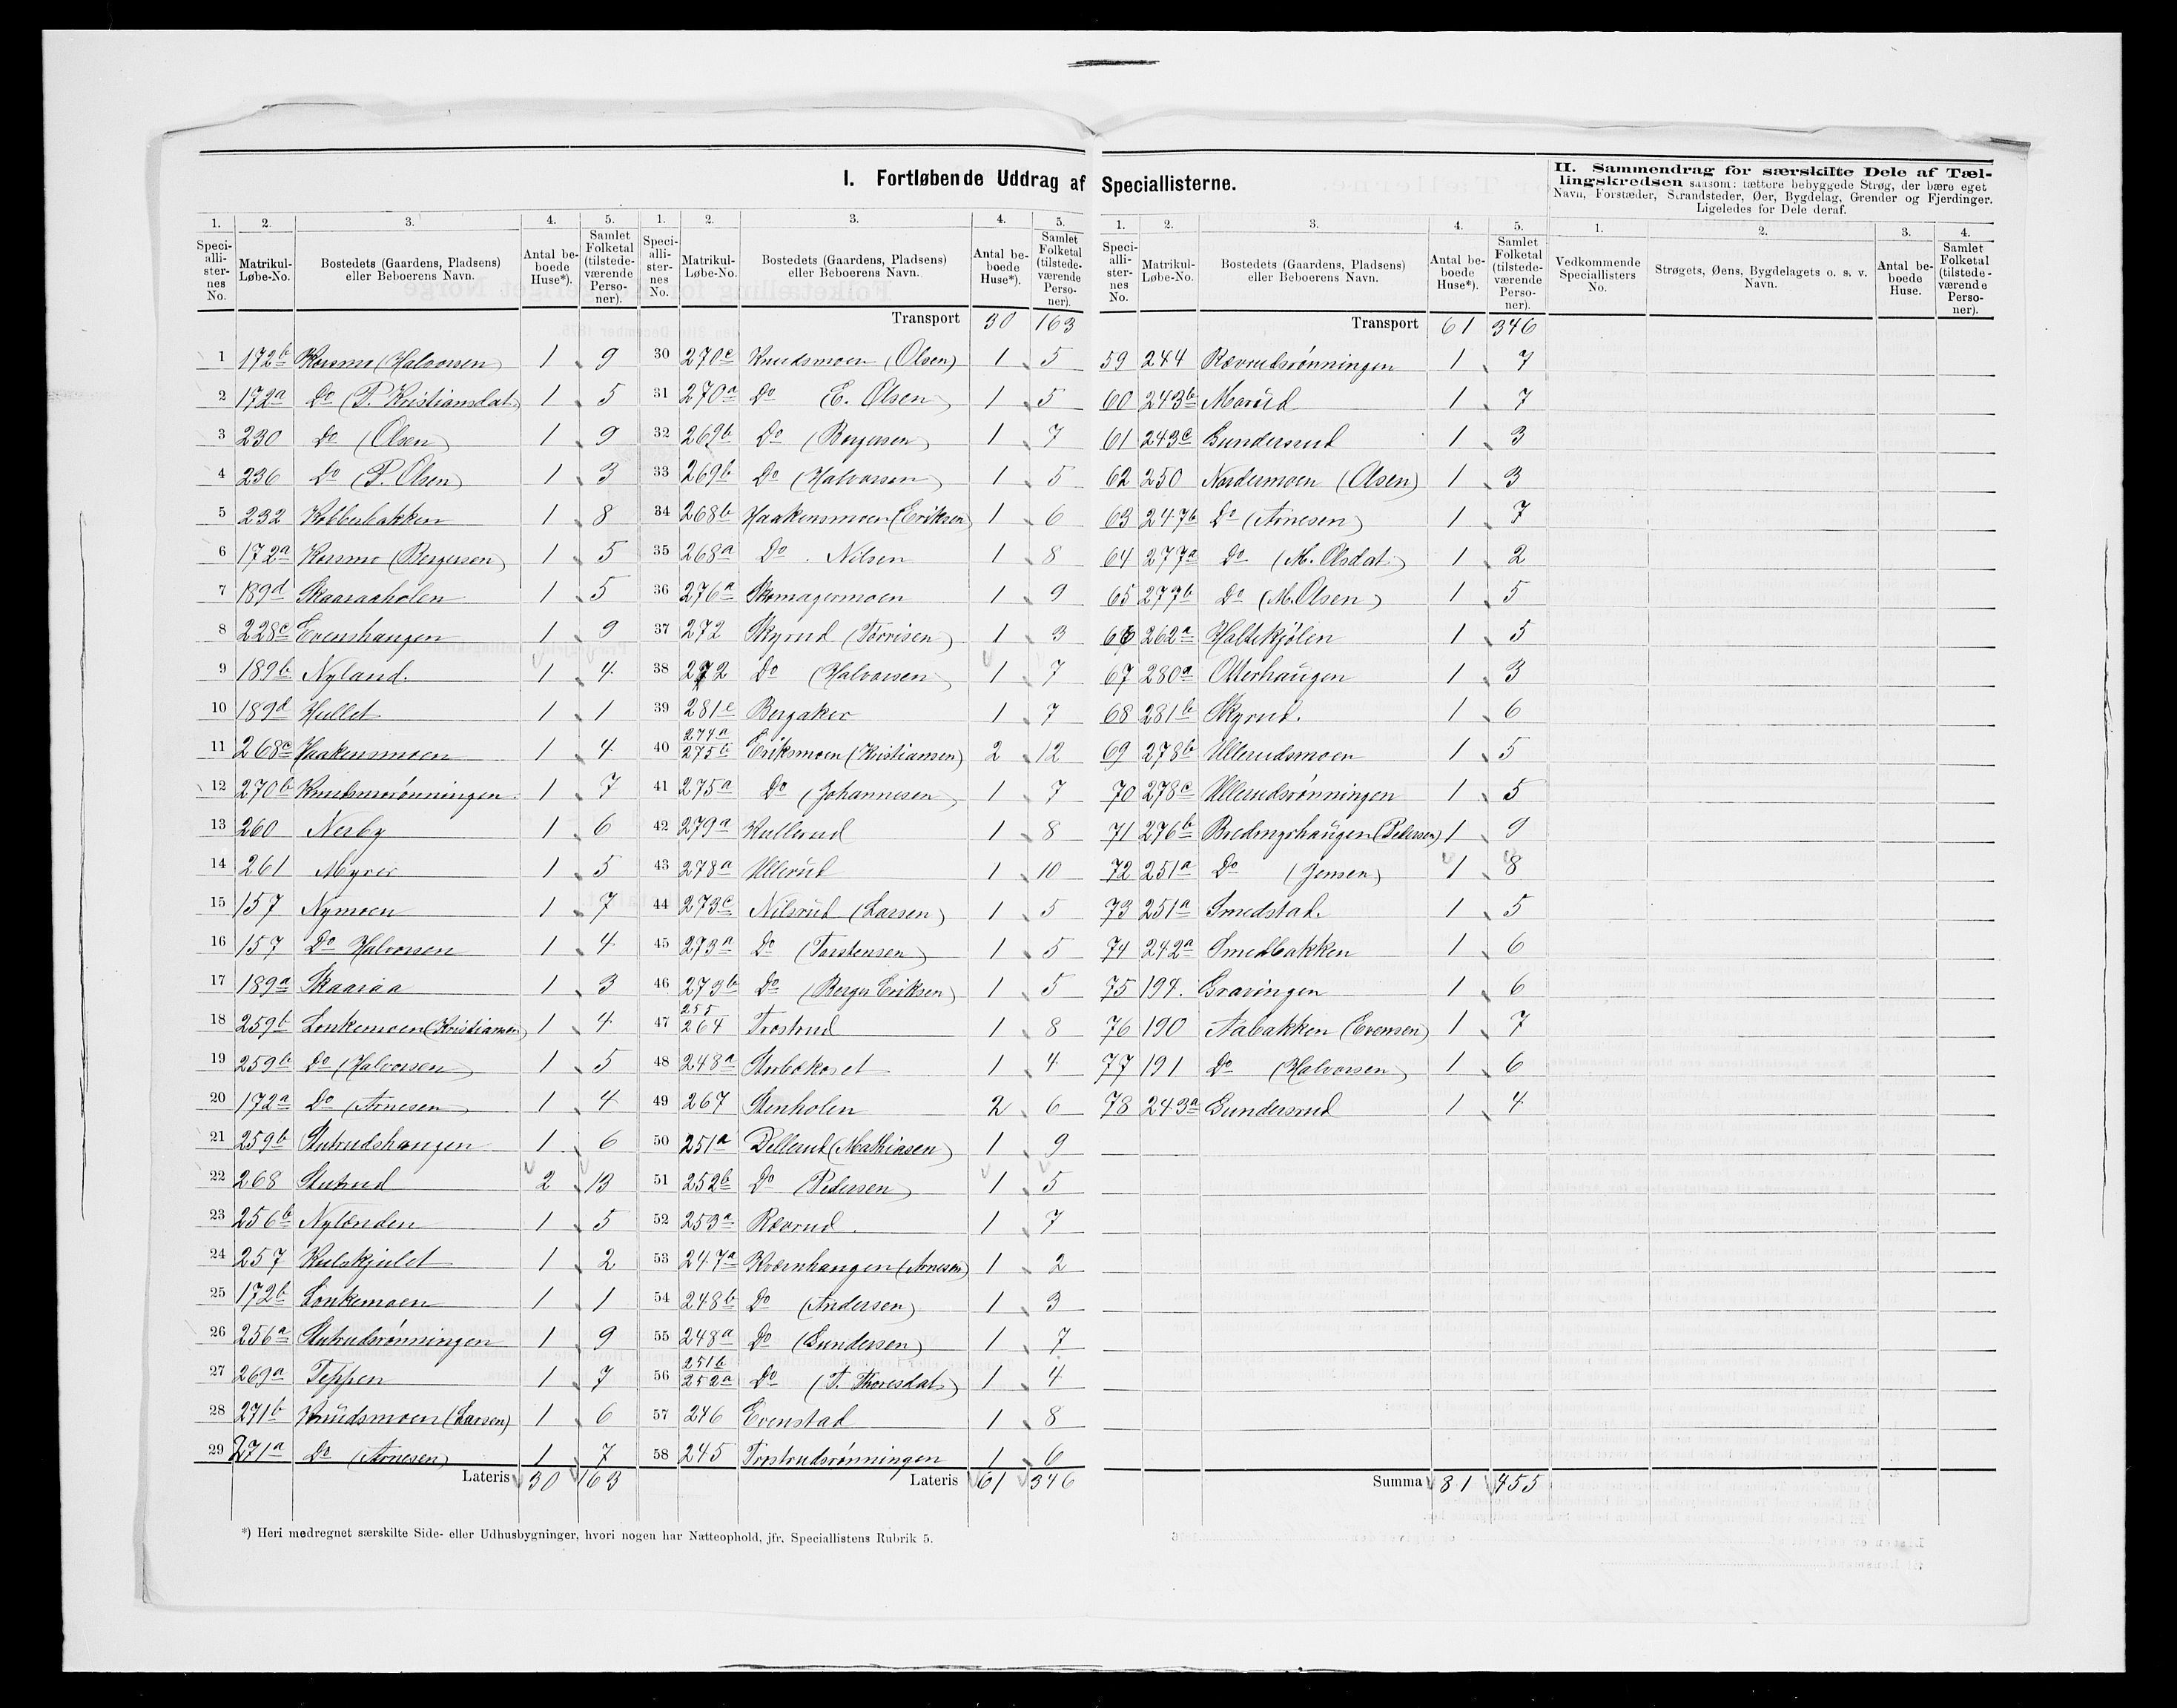 I. Fortløbende Uddrag af Speciallisterne.
II. Sammendrag for særskilte Dele af Tællingskredsen saasom: tættere bebyggede Strøg, der bære eget Navn, Forstæder, Strandsteder, Øer, Bygdelag, Grender og Fjerdinger. Ligeledes for Dele deraf.
1. 2. 3. 4. 5.
Speciallisternes No. Matrikul-Løbe-No. Bostedets (Gaardens, Pladsens) eller Beboerens Navn. Antal beboede Huse*). Samlet Folketal (tilstedeværende Personer).
1 172b Korsmo (Halvorsen) 1 9
2 172a Do (P. Kristiansdat.) 1 5
3 230 Do (Olsen) 1 9
4 236 Do (P. Olsen) 1 3
5 232 Kobberbakken 1 8
6 172a Korsmo (Bergersen) 1 5
7 189d Skaaraaholen 1 5
8 228c Evenshaugen 1 9
9 189b Nyland. 1 4
10 189d Hullet 1 1
11 268c Haakensmoen 1 4
12 270b Knudsmorønningen 1 7
13 260 Nesby 1 6
14 261 Myrer 1 5
15 157 Nymoen 1 7
16 157 Do Halvorsen 1 4
17 189a Skaaraa 1 3
18 259b Lonkemoen (Kristiansen) 1 4
19 259b Do (Halvorsen) 1 5
20 172a Do (Arnesen) 1 4
21 259b Stutrudshaugen 1 6
22 268 Stutrud 2 13
23 256b Nylænden 1 5
24 257 Kulskjulet 1 2
25 172b Lonkemoen 1 1
26 256a Stutrudsrønningen 1 9
27 269a Teppen 1 7
28 271b Knudsmoen (Larsen) 1 6
29 271a Do (Arnesen) 1 7
Lateris 30 163
1. 2. 3. 4. 5.
Speciallisternes No. Matrikul-Løbe-No. Bostedets (Gaardens, Pladsens) eller Beboerens Navn. Antal beboede Huse*). Samlet Folketal (tilstedeværende Personer).
Transport 30 163
30 270c Knudsmoen (Olsen) 1 5
31 270a Do E. Olsen 1 5
32 269b Do (Bergersen) 1 7
33 269b Do (Halvorsen) 1 5
34 268b Haakensmoen (Eriksen) 1 6
35 268a Do . Nilsen 1 8
36 276a Skomagermoen 1 9
37 272 Skyrud (Torrisen) 1 3
38 272 Do (Halvorsen) 1 7
39 281c Bergaker 1 7
40 274a 275b Eriksmoen (Kristiansen) 2 12
41 275a Do (Johannesen) 1 7
42 279a Kullerud 1 8
43 278a Ullerud 1 10
44 273c Nilsrud (Larsen) 1 5
45 273a Do (Torstensen) 1 5
46 273b Do (Berger Eriksen) 1 5
47 255 264 Trostrud 1 8
48 248a Stubækoset 1 4
49 267 Stenholen 2 6
50 251a Dellerud (Mathiasen) 1 9
51 252b Do (Pedersen) 1 5
52 253a Rævrud. 1 7
53 247a Kværnhaugen (Arnesen) 1 2
54 248b Do (Andersen) 1 3
55 248a Do (Gundersen) 1 7
56 251b 252a Do (T. Thoresdat) 1 4
57 246 Evenstad 1 8
58 245 Trostrudsrønningen 1 6
Lateris 61 346
1. 2. 3. 4. 5.
Speciallisternes No. Matrikul-Løbe-No. Bostedets (Gaardens, Pladsens) eller Beboerens Navn. Antal beboede Huse*). Samlet Folketal (tilstedeværende Personer).
Transport 61 346
59 244 Rævrudsrønningen 1 7
60 243b Morud 1 7
61 243c Gundersrud 1 3
62 250 Nordermoen (Olsen) 1 3
63 247b Do (Arnesen) 1 7
64 277a Do (M. Olsdat.) 1 2
65 277b Do (M. Olsen) 1 5
66 262a Haltekjølen 1 5
67 280a Otterhaugen 1 3
68 281b Skyrud. 1 6
69 278b Ullerudsmoen 1 5
70 278c Ullerudsrønningen 1 5
71 276b (Pedersen) 1 9
72 251a Do (Jensen) 1 8
73 251a Smedstad. 1 5
74 242a Smedbakken 1 6
75 194. Graringen 1 6
76 190 Aabakken (Evensen) 1 7
77 191 Do (Halvorsen) 1 6
78 243a Gundersrud 1 4
Summa 81 455
1. 2. 3. 4.
Vedkommende Speciallisters No. Strøgets, Øens, Bygdelagets o. s. v. Navn. Antal beboede Huse. Samlet Folketal (tilstedeværende Personer).
*) Heri medregnet særskilte Side- eller Udhusbygninger, hvori nogen har Natteophold, jfr. Speciallistens Rubrik 5.